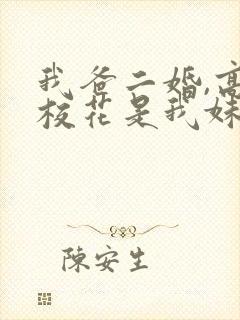 我爸二婚,高
校花是我妹
陳安生